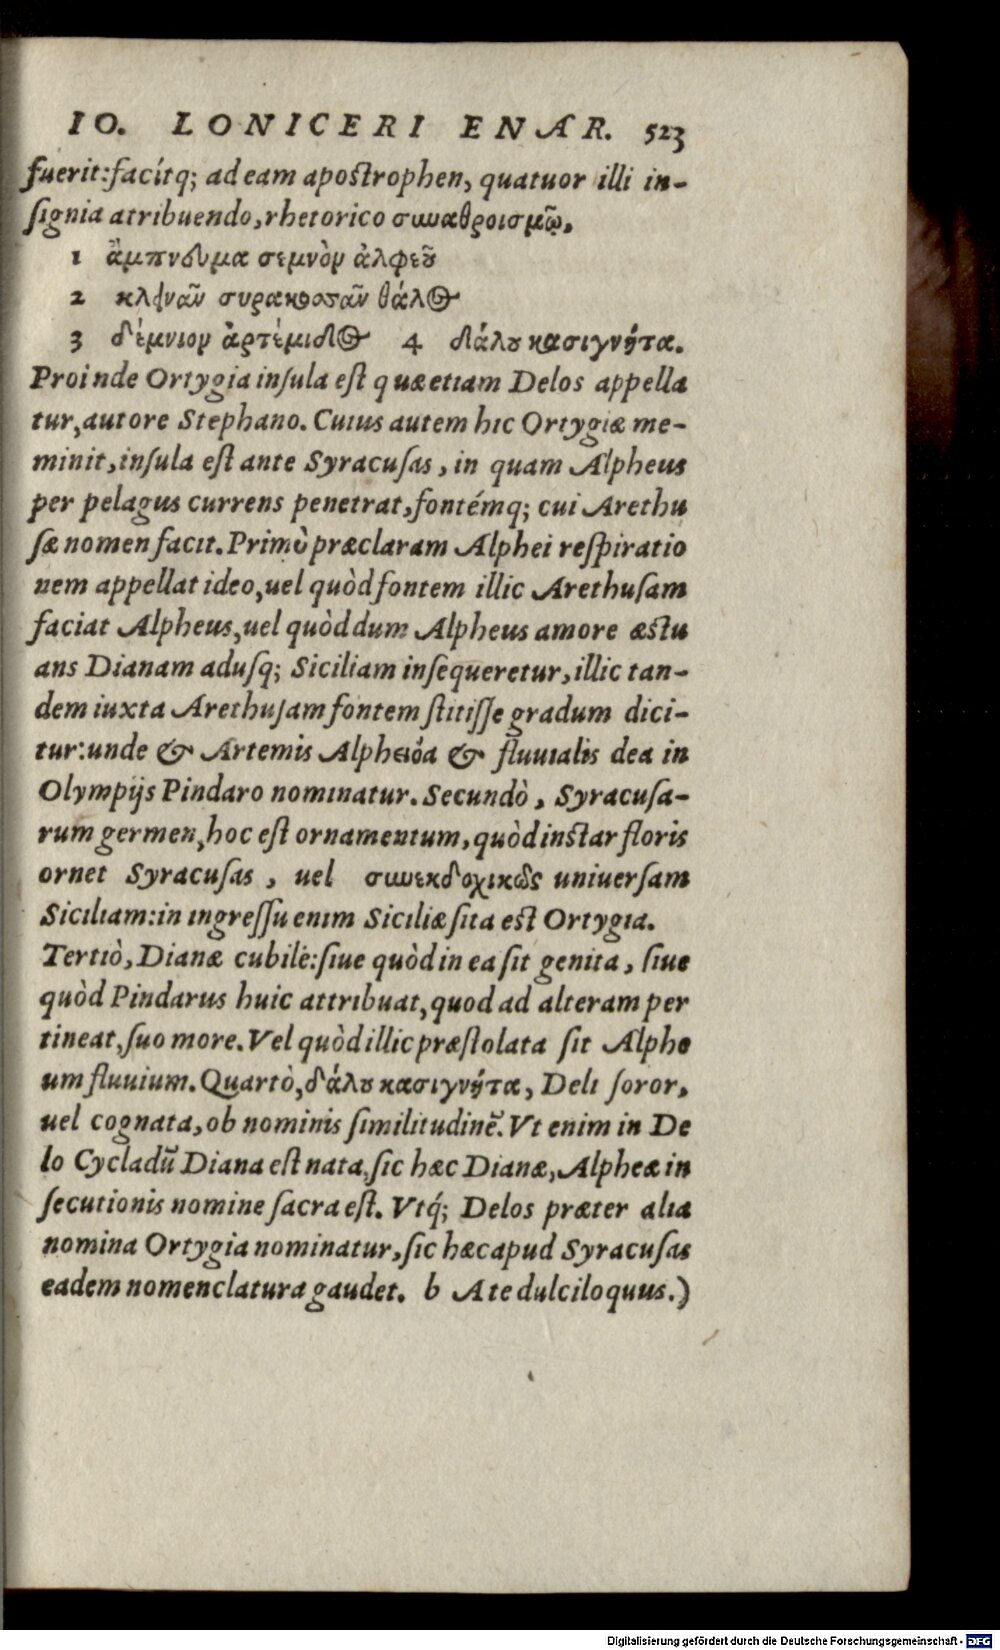 IO. LONICERI ENAR. 523
fuerit: facítq; ad eam apostrophen, quatuor illi in-
signia atribuendo, rhetorico συναθροισμῷ.
1 ἄμπνευμα σεμνὸν ἀλφεοῦ
2 κλεινᾶν συρακοσσᾶν θάλος
3 δέμνιον ἀρτέμιδος 4 δάλου κασιγνήτα.
Proinde Ortygia insula est quæ etiam Delos appella
tur, autore Stephano. Cuius autem hic Ortygiæ me-
minit, insula est ante Syracusas, in quam Alpheus
per pelagus currens penetrat, fontémq; cui Arethu
sæ nomen facit. Primò præclaram Alphei respiratio
nem appellat ideo, uel quòd fontem illic Arethusam
faciat Alpheus, uel quòd dum Alpheus amore æstu
ans Dianam adusq; Siciliam insequeretur, illic tan-
dem iuxta Arethusam fontem stitisse gradum dici-
tur: unde & Artemis Alpheiôa & fluuialis dea in
Olympijs Pindaro nominatur. Secundò, Syracusa-
rum germen, hoc est ornamentum, quòd instar floris
ornet Syracusas, uel συνεκδοχικῶς uniuersam
Siciliam: in ingressu enim Siciliæ sita est Ortygia.
Tertiò, Dianæ cubile: siue quòd in ea sit genita, siue
quòd Pindarus huic attribuat, quod ad alteram per
tineat, suo more. Vel quòd illic præstolata sit Alphe
um fluuium. Quartò, δάλου κασιγνήτα, Deli soror,
uel cognata, ob nominis similitudinẽ. Vt enim in De
lo Cycladũ Diana est nata, sic hæc Dianæ, Alpheæ in
secutionis nomine sacra est. Vtq́; Delos præter alia
nomina Ortygia nominatur, sic hæc apud Syracusas
eadem nomenclatura gaudet. b A te dulciloquus.)
Digitalisierung gefördert durch die Deutsche Forschungsgemeinschaft - DFG